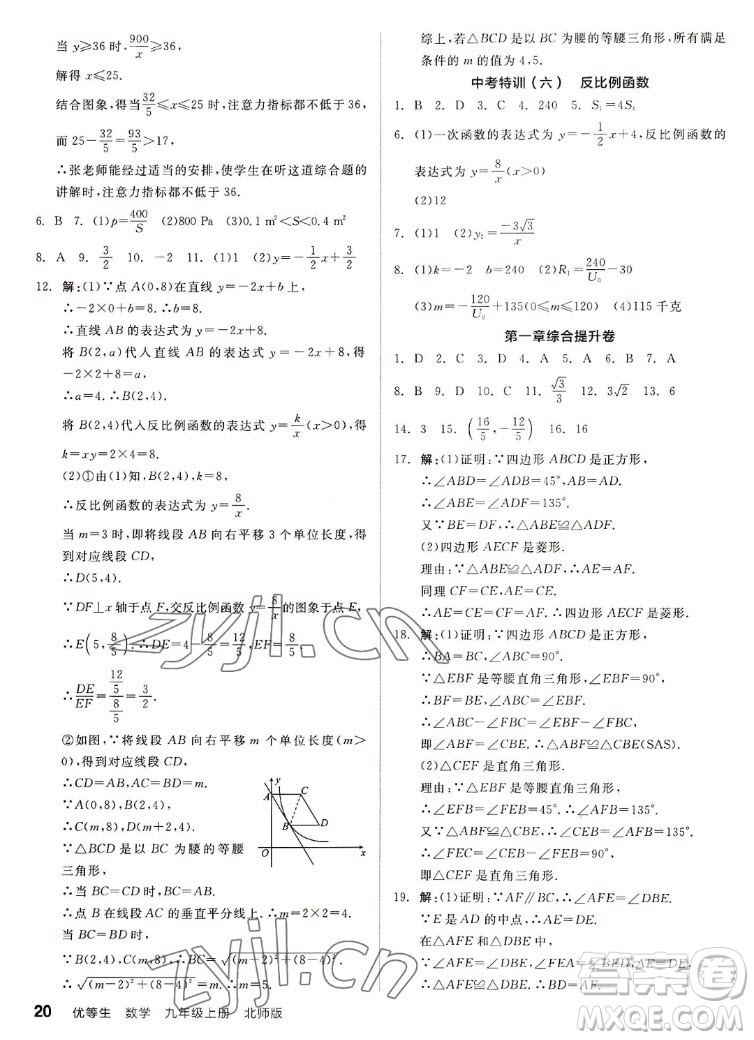 当 y≥36时,900/x≥36,
解得 x≤25.
结合图象,得32/5≤x≤25时,注意力指标都不低于36.
而25-32/5=93/5>17,
∴张老师能经过适当的安排,使学生在听这道综合题的
讲解时,注意力指标都不低于36.
6. B 7. (1)p=400/S (2)800 Pa (3)0.1 m²<S<0.4 m²
8. A 9. 3/2 10. -2 11. (1)1 (2)y=-1/2x+3/2
12. 解:(1)∵点 A(0,8)在直线 y=-2x+b上,
∴-2×0+b=8,∴b=8,
∴直线 AB 的表达式为 y=-2x+8.
将 B(2,a)代人直线的表达式 y=-2x+8,得
-2×2+8=a,
∴a=4.∴B(2,4).
将 B(2,4)代入反比例函数的表达式 y=k/x(x>0),得
k=xy=2×4=8.
(2)①由(1)知,B(2,4),k=8,
∴反比例函数的表达式为 y=8/x.
当 m=3时,即将线段 AB 向右平移3个单位长度,得
到对应线段 CD,
∴D(5,4).
∵DF⊥x 轴于点 F,交反比例函数 y=8/x的图象于点 E,
∴E(5,8/5),∴DE=4-8/5=12/5,EF=8/5,
∴DE/EF=(12/5)/(8/5)=3/2.
②如图,∵将线段 AB 向右平移 m 个单位长度(m>
0),得到对应线段 CD,
∴CD=AB,AC=BD=m.
∵A(0,8),B(2,4),
∴C(m,8),D(m+2,4).
∵△BCD 是以 BC 为腰的等腰
三角形,
∴当 BC=CD 时,BC=AB,
∴点 B 在线段 AC 的垂直平分线上,∴m=2×2=4.
当 BC=BD 时,
∵B(2,4),C(m,8),∴BC=√((m-2)²+(8-4)²),
∴√((m-2)²+(8-4)²)=m,∴m=5.
y
A
C
B
D
O
x
20 优等生 数学 九年级上册 北师版
综上,若△BCD 是以 BC 为腰的等腰三角形,所有满足
条件的 m 的值为4,5.
中考特训(六) 反比例函数
1. B 2. D 3. C 4. 240 5. S₁=4S₂
6. (1)一次函数的表达式为 y=-1/2x+4,反比例函数的
表达式为 y=8/x(x>0)
(2)12
7. (1)1 (2)y₂=-3√3/x
8. (1)k=-2 b=240 (2)R₁=240/U₀-30
(3)m=-120/U₀+135(0≤m≤120) (4)115千克
第一章综合提升卷
1. D 2. C 3. D 4. A 5. A 6. B 7. A
8. B 9. D 10. C 11. √3/3 12. √3 13. 6
14. 3 15. (16/5,-12/5) 16. 16
17. 解:(1)证明:∵四边形 ABCD 是正方形,
∴∠ABD=∠ADB=45°,AB=AD,
∴∠ABE=∠ADF=135°.
又∵BE=DF,∴△ABE≌△ADF.
(2)四边形 AECF 是菱形.
理由:∵△ABE≌△ADF,∴AE=AF.
同理 CF=CE,AF=CF,
∴AE=CE=CF=AF,∴四边形 AECF 是菱形.
18. 解:(1)证明:∵四边形 ABCD 是正方形,
∴BA=BC,∠ABC=90°.
∵△EBF 是等腰直角三角形,
∴BF=BE,∠EBF=90°,
∴∠ABC-∠FBC=∠EBF-∠FBC,
即∠ABF=∠CBE,∴△ABF≌△CBE(SAS).
(2)△CEF 是直角三角形.
理由:∵△EBF 是等腰直角三角形,
∴∠EFB=∠FEB=45°,∴∠AFB=135°.
又∵△ABF≌△CBE,∴∠CEB=∠AFB=135°,
∴∠CEF=∠CEB-∠FEB=135°-45°=90°,
即△CEF 是直角三角形.
19. 解:(1)证明:∵AF∥BC,∴∠AFE=∠DBE.
∵E 是 AD 的中点,∴AE=DE.
在△AFE 和△DBE 中,
∵∠AFE=∠DBE,∠FEA=∠BED,AE=DE,
∴△AFE≌△DBE(AAS),
zyjl.cn
zyjl.cn